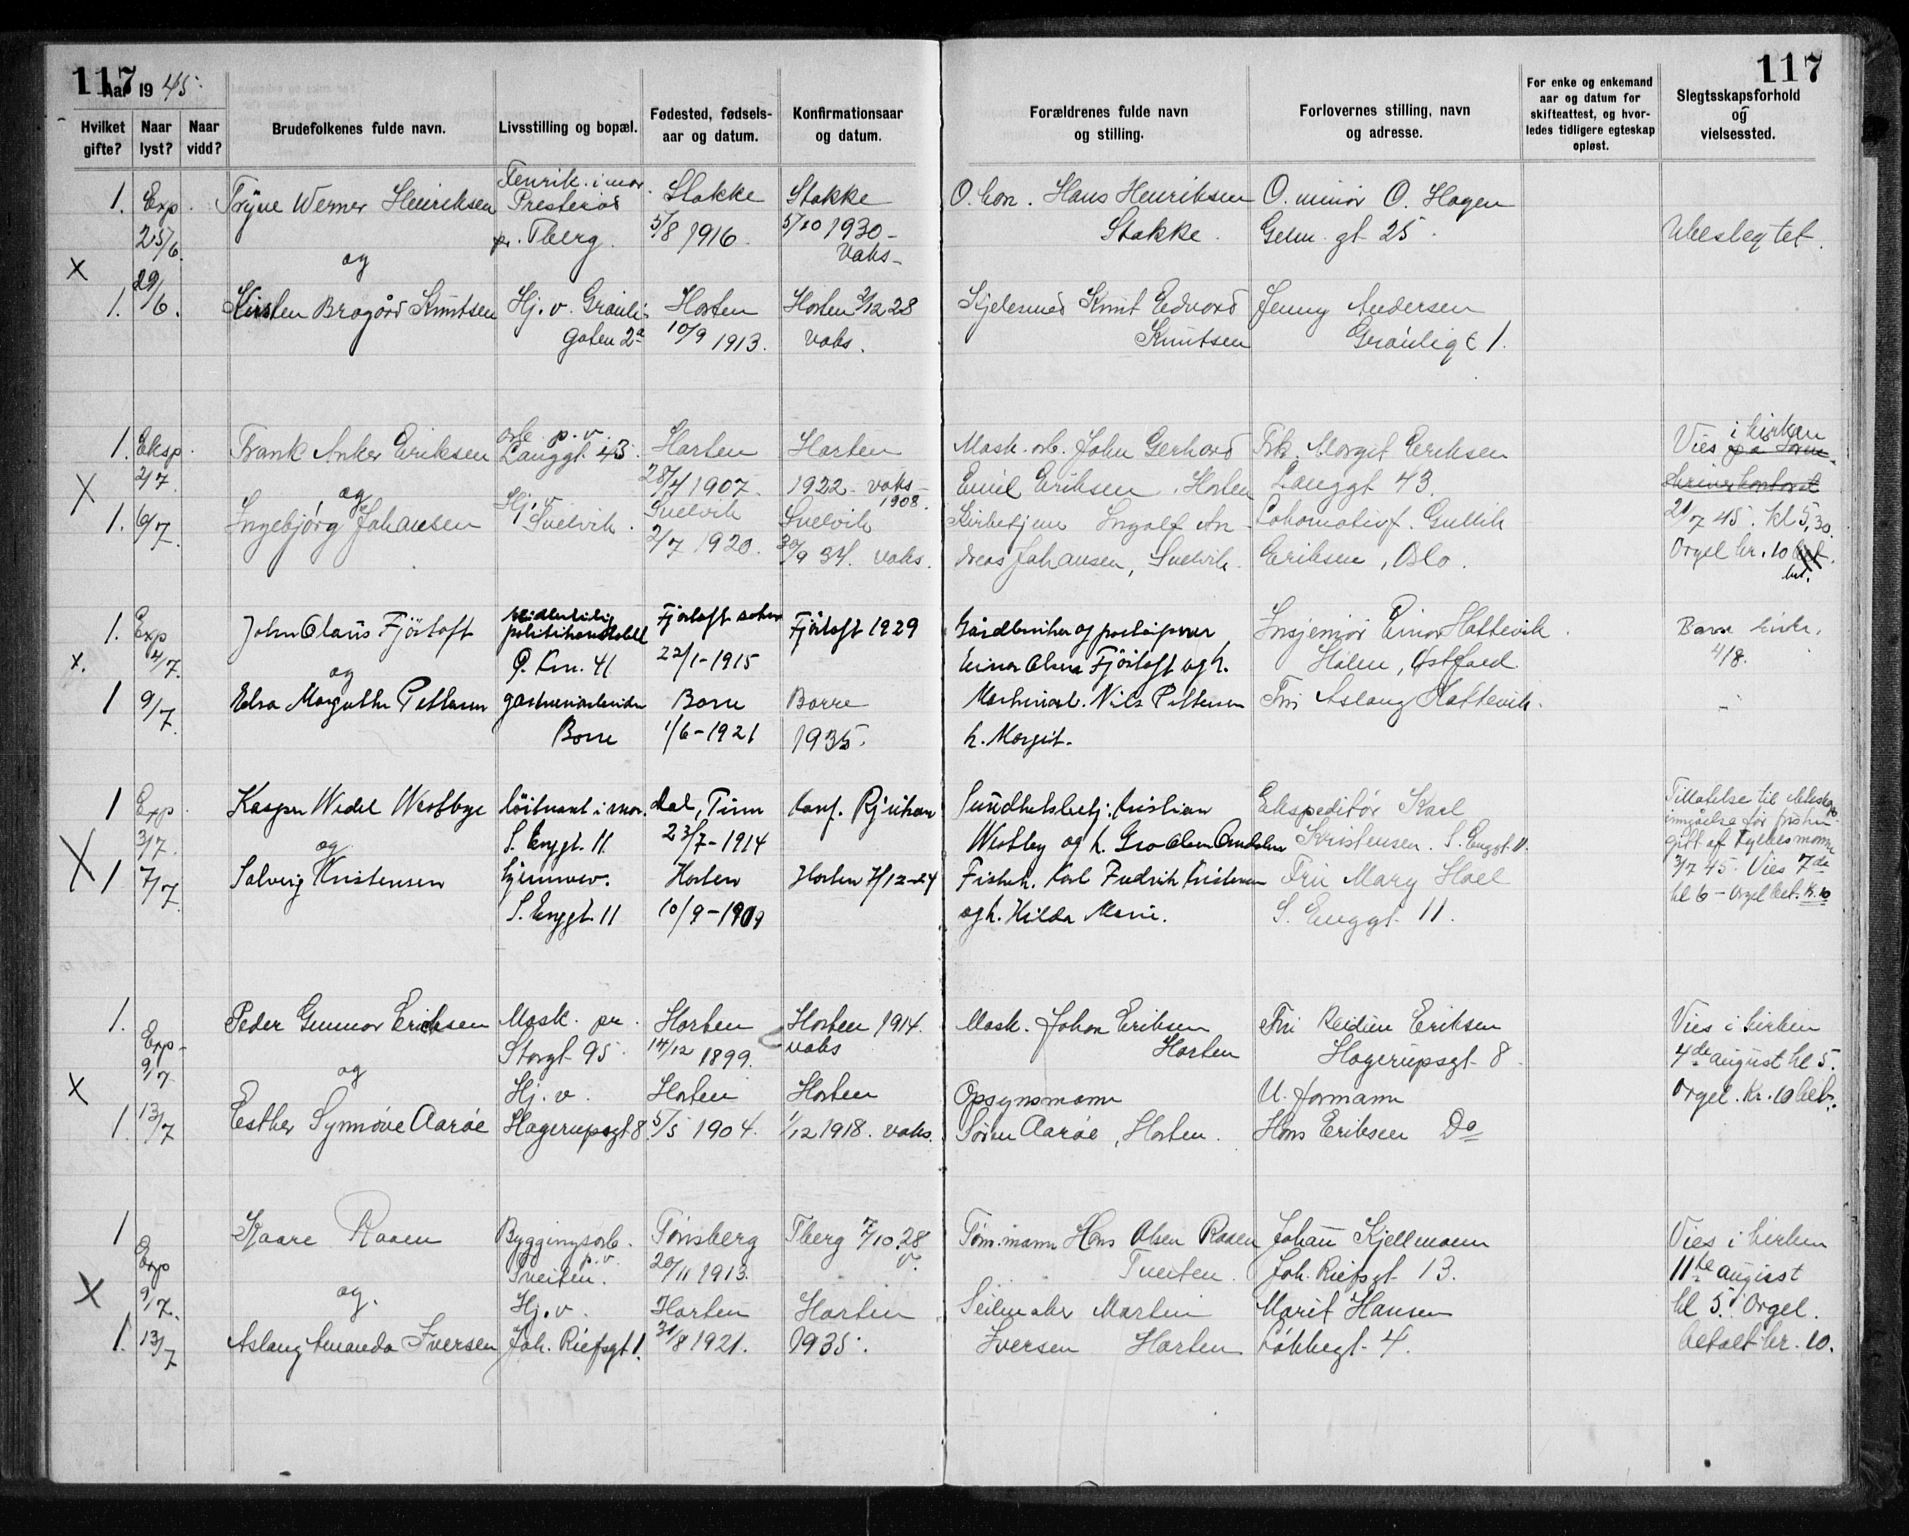 117
Aar 1945.
117
Hvilket gifte?
Naar lyst?
Naar vidd?
Brudefolkenes fulde navn.
Livsstilling og bopæl.
Fødested, fødsels-
aar og datum.
Konfirmationsaar
og datum.
Forældrenes fulde navn
og stilling.
Forlovernes stilling, navn
og adresse.
For enke og enkemand
aar og datum for
skifteattest, og hvor-
ledes tidligere egteskap
opløst.
Slegtsskapsforhold
og
vielsessted.
Fenrik i mar.
1. Exp. Werner Henriksen Stokke Stokke Hans Henriksen O. minør O. Hagen
25/6 pr. Tberg. 5/8 1916. 5/10 1930 - Stokke. gt 25. Ubeslegtet.
og vaks -
x 29/6
1. Kirsten Bragård Knutsen Hj. v. Horten Horten 2/12 28 Knut Edvard Jenny Andersen
gaten 2a 10/9 1913. vaks. Knutsen 1.
arb. p. v. i kirken
1. Eksp. Frank Anker Eriksen Langgt 43. Horten Horten Mask. arb. John Gerhard Frk. Margit Eriksen Vies
2/7 28/4 1907. 1922 - vaks - Emil Eriksen, Horten Langgt 43.
x og Hj. v. 1908.
1. 6/7. Ingebjørg Johansen Svelvik. Svelvik Svelvik Ingolf An- Lokomotivf. Gullik 21/7 45. kl 5,30.
2/7 1920. 30/9 34. vaks. dreas Johansen, Svelvik. Eriksen, Oslo. Orgel kr. 10 bet.
bet.
1. Exp. John Olaus Fjörtoft midlertidig Fjörtoft 1929 Einar Hattevik. Borre kirke.
4/7. politikonstabel 22/1-1915 Einar Fjörtoft og h. 4/8.
x. og
1 9/7. Elsa Margrethe Pettersen Borre Borre Nils Pettersen Aslaug Hattevik.
Borre 1/6-1921 1935. h. Margit.
1 Exp. Kasper Wedel Westbye löitnant i mar. Dal, Tinn konf. Rjukan Kristian Ekspeditør Karl Tillatelse til
3/7. S. Enggt. 11 23/7-1914 Westby og h. Kristensen. S. Enggt 11.
x og
1 7/7 Solveig Kristensen hjemmev. Horten Horten 7/12-24 Karl Fredrik Kristensen Fru Mary Hoel 3/7 45. Vies 7de
S. Enggt. 11 10/9-1909 og h. Hilda Marie. S. Enggt. 11. kl 6 - Orgel bet. kr. 10
1. Exp. Peder Gunnar Eriksen Mask. pr. Horten Horten 1914. Mask. Johan Eriksen Fru Reidun Eriksen Vies i kirken
9/7 Storgt 95. 14/12 1899. vaks Horten Hagerupsgt. 8. 4de august kl 5.
x og Hj. v. Horten Horten Opsynsmann U. formann Orgel. kr. 10 bet.
1. 13/7 Esther Synnøve Aarøe Hagerupsgt 8 5/5 1904. 1/12 1918. vaks. Søren Aarøe, Horten. Hans Eriksen Do
1 Exp Kaare Raaen Byggingsarb. Tønsberg Tberg 7/10 28 Tøm.mann Hans Olsen Raaen Johan Kjellmann Vies i kirken
9/7. p.v. Tveiten. 20/11 1913. v. Tveiten. Joh. Riefsgt. 13. 11te august
x og. Hj. v. Horten Horten Martin Marit Hansen kl 5. Orgel.
1. 13/7 Aslaug Amanda Iversen Joh. Riefsgt 1. 31/8 1921. 1935. Iversen Horten Løkkegt. 4. betalt kr. 10.